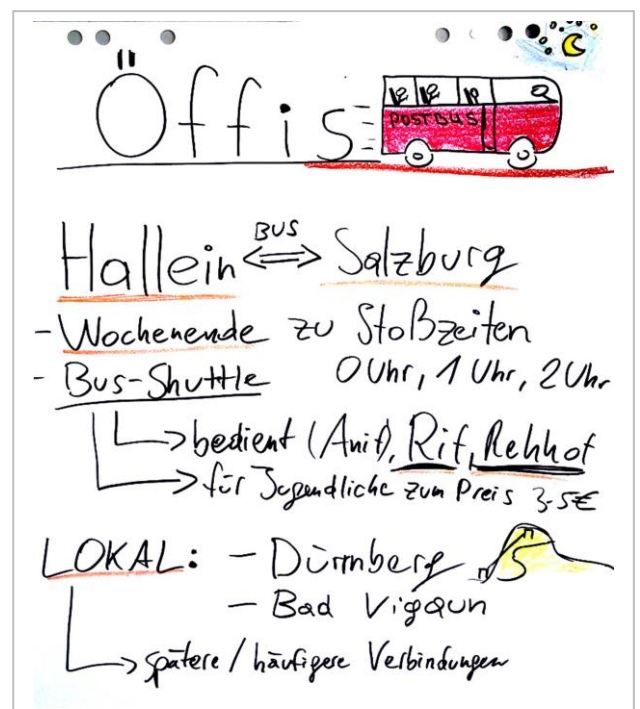 Öffis
POSTBUS
BUS
Hallein <=> Salzburg
- Wochenende zu Stoßzeiten
- Bus-Shuttle 0 Uhr, 1 Uhr, 2 Uhr
-> bedient (Anif), Rif, Rehhof
-> für Jugendliche zum Preis 3-5€
LOKAL: - Dürrnberg
- Bad Vigaun
-> spätere / häufigere Verbindungen